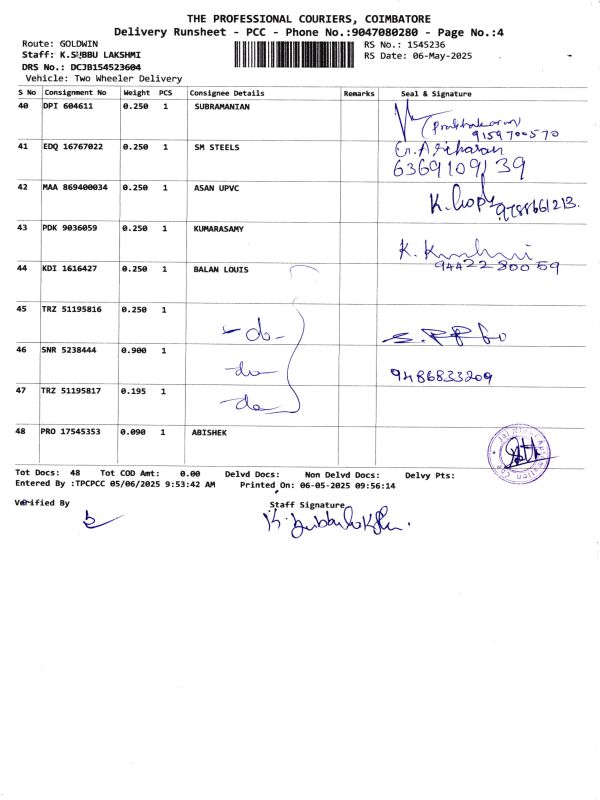 THE PROFESSIONAL COURIERS, COIMBATORE
Delivery Runsheet - PCC - Phone No.:9047080280 - Page No.:4
Route: GOLDWIN
RS No.: 1545236
Staff: K.SUBBU LAKSHMI
RS Date: 06-May-2025
DRS No.: DCJB154523604
Vehicle: Two Wheeler Delivery
S No Consignment No Weight PCS Consignee Details Remarks Seal & Signature
40 DPI 604611 0.250 1 SUBRAMANIAN
(Prabhakaran)
9159700570
41 EDQ 16767022 0.250 1 SM STEELS
6369109139
42 MAA 869400034 0.250 1 ASAN UPVC
K. Gopi
9788661213.
43 PDK 9036059 0.250 1 KUMARASAMY
K.
94422 80059
44 KDI 1616427 0.250 1 BALAN LOUIS
45 TRZ 51195816 0.250 1
- do -
46 SNR 5238444 0.900 1
do
9486833209
47 TRZ 51195817 0.195 1
do
48 PRO 17545353 0.090 1 ABISHEK
Tot Docs: 48 Tot COD Amt: 0.00 Delvd Docs: Non Delvd Docs: Delvy Pts:
Entered By :TPCPCC 05/06/2025 9:53:42 AM Printed On: 06-05-2025 09:56:14
Verified By
Staff Signature
K. Subbulakshmi.